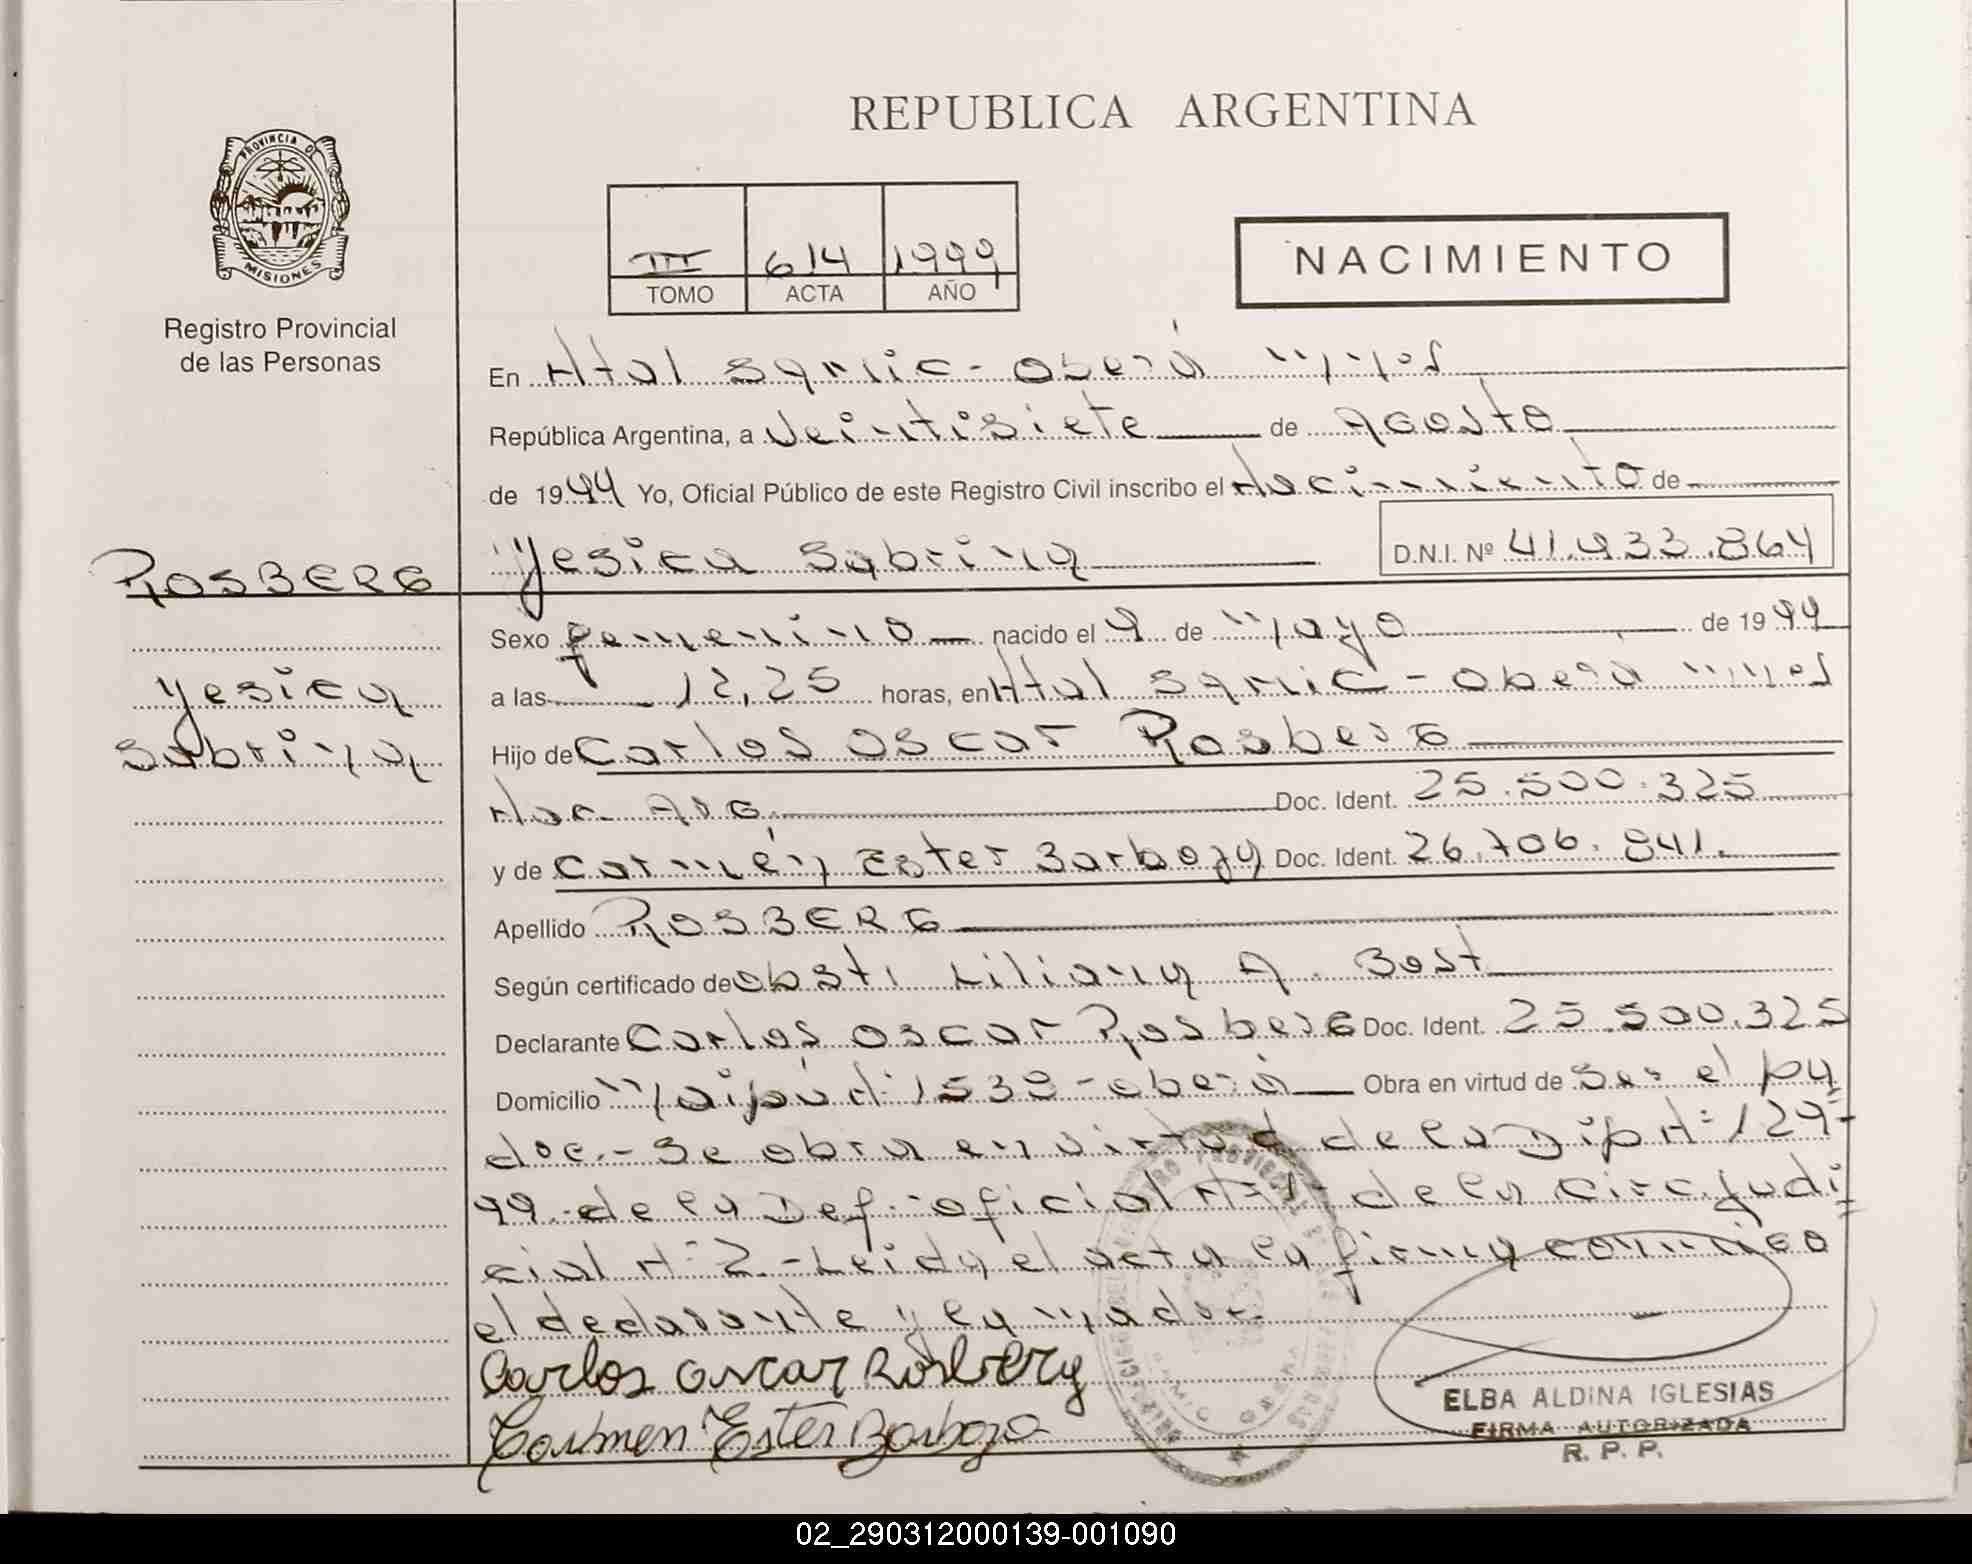 REPUBLICA ARGENTINA
PROVINCIA D
MISIONES
Registro Provincial
de las Personas
III 614 1999
TOMO ACTA AÑO
NACIMIENTO
En Htal Samic - Oberá Mnes
República Argentina, a Veintisiete de Agosto
de 1999 Yo, Oficial Público de este Registro Civil inscribo el Nacimiento de
Yesica Sabrina D.N.I. Nº 41.933.864
ROSBERG
Yesica
Sabrina
Sexo femenino nacido el 9 de Mayo de 1999
a las 12,25 horas, en Htal Samic - Oberá Mnes
Hijo de Carlos Oscar Rosberg
Nac. Arg. Doc. Ident. 25.500.325
y de Carmén Ester Barboza Doc. Ident. 26.706.841.
Apellido ROSBERG
Según certificado de obst. Liliana A. Bost
Declarante Carlos Oscar Rosberg Doc. Ident. 25.500.325
Domicilio Maipú N: 1539 - Oberá Obra en virtud de Ser el pa
dre.- Se obra en virtud de la Disp N: 129-
99.- de la Def. oficial N: 1 de la Circ. Judi=
cial N: 2.- Leida el acta la firma conmigo
el declarante y la madre.
Carlos Oscar Rosberg
Carmen Ester Barboza
SAMIC OBERA
ELBA ALDINA IGLESIAS
FIRMA AUTORIZADA
R. P. P.
02_290312000139-001090